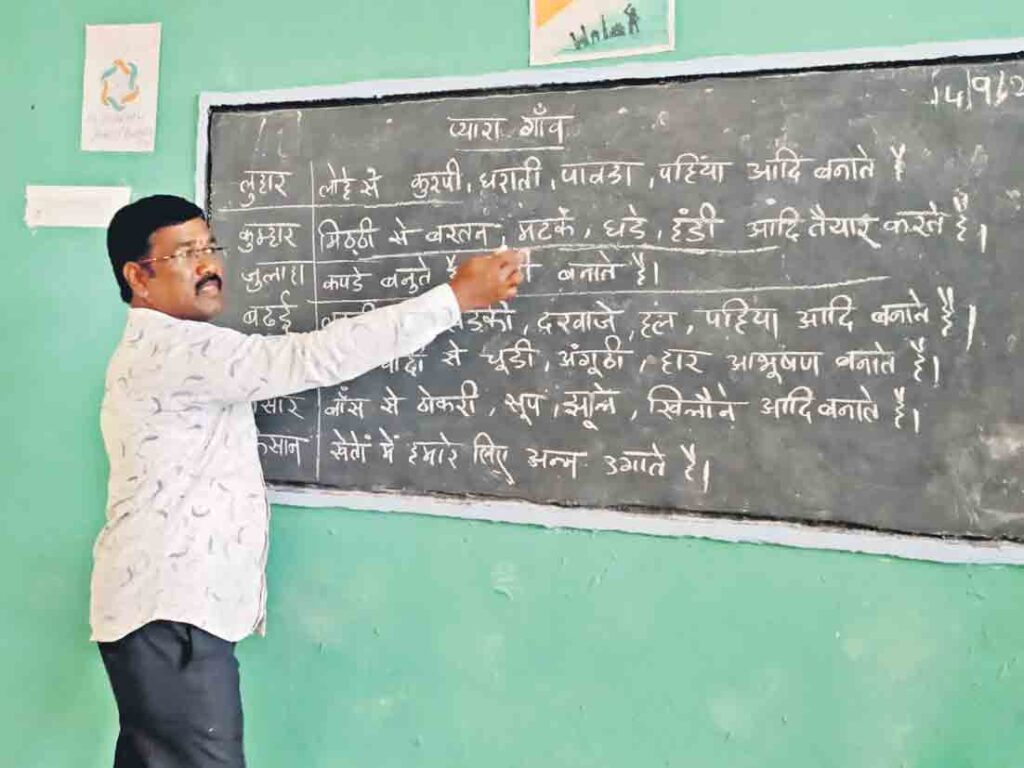 14/9/2
प्यारा गाँव
लुहार लोहे से कुरपी, धराती, पावडा, पहिंया आदि बनाते है
कुम्हार मिठ्ठी से बरतन, मटके, घडे, हंडी आदि तैयार करते है।
जुलाहा कपडे बनुते है बनाते है।
बढई खिडकी, दरवाजे, हल, पहिंया आदि बनाते है।
से चूडी, अंगूठी, हार आभूषण बनाते है।
बाँस से ठोकरी, सूप, झूले, खिलौने आदि बनाते है।
खेतों में हमारे लिए अन्न उगाते है।